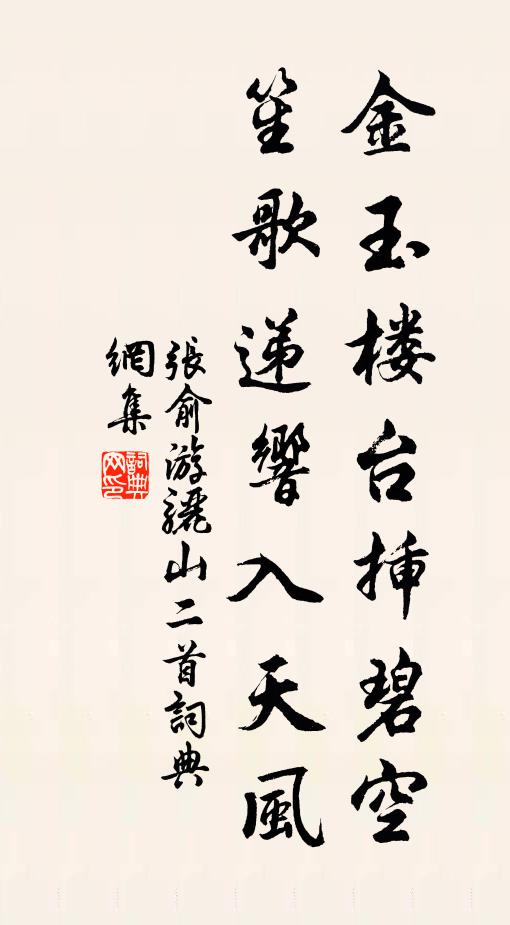 金玉楼台插碧空
笙歌递響入天風
張俞游驪山二首詞典
網集
詞典
网印